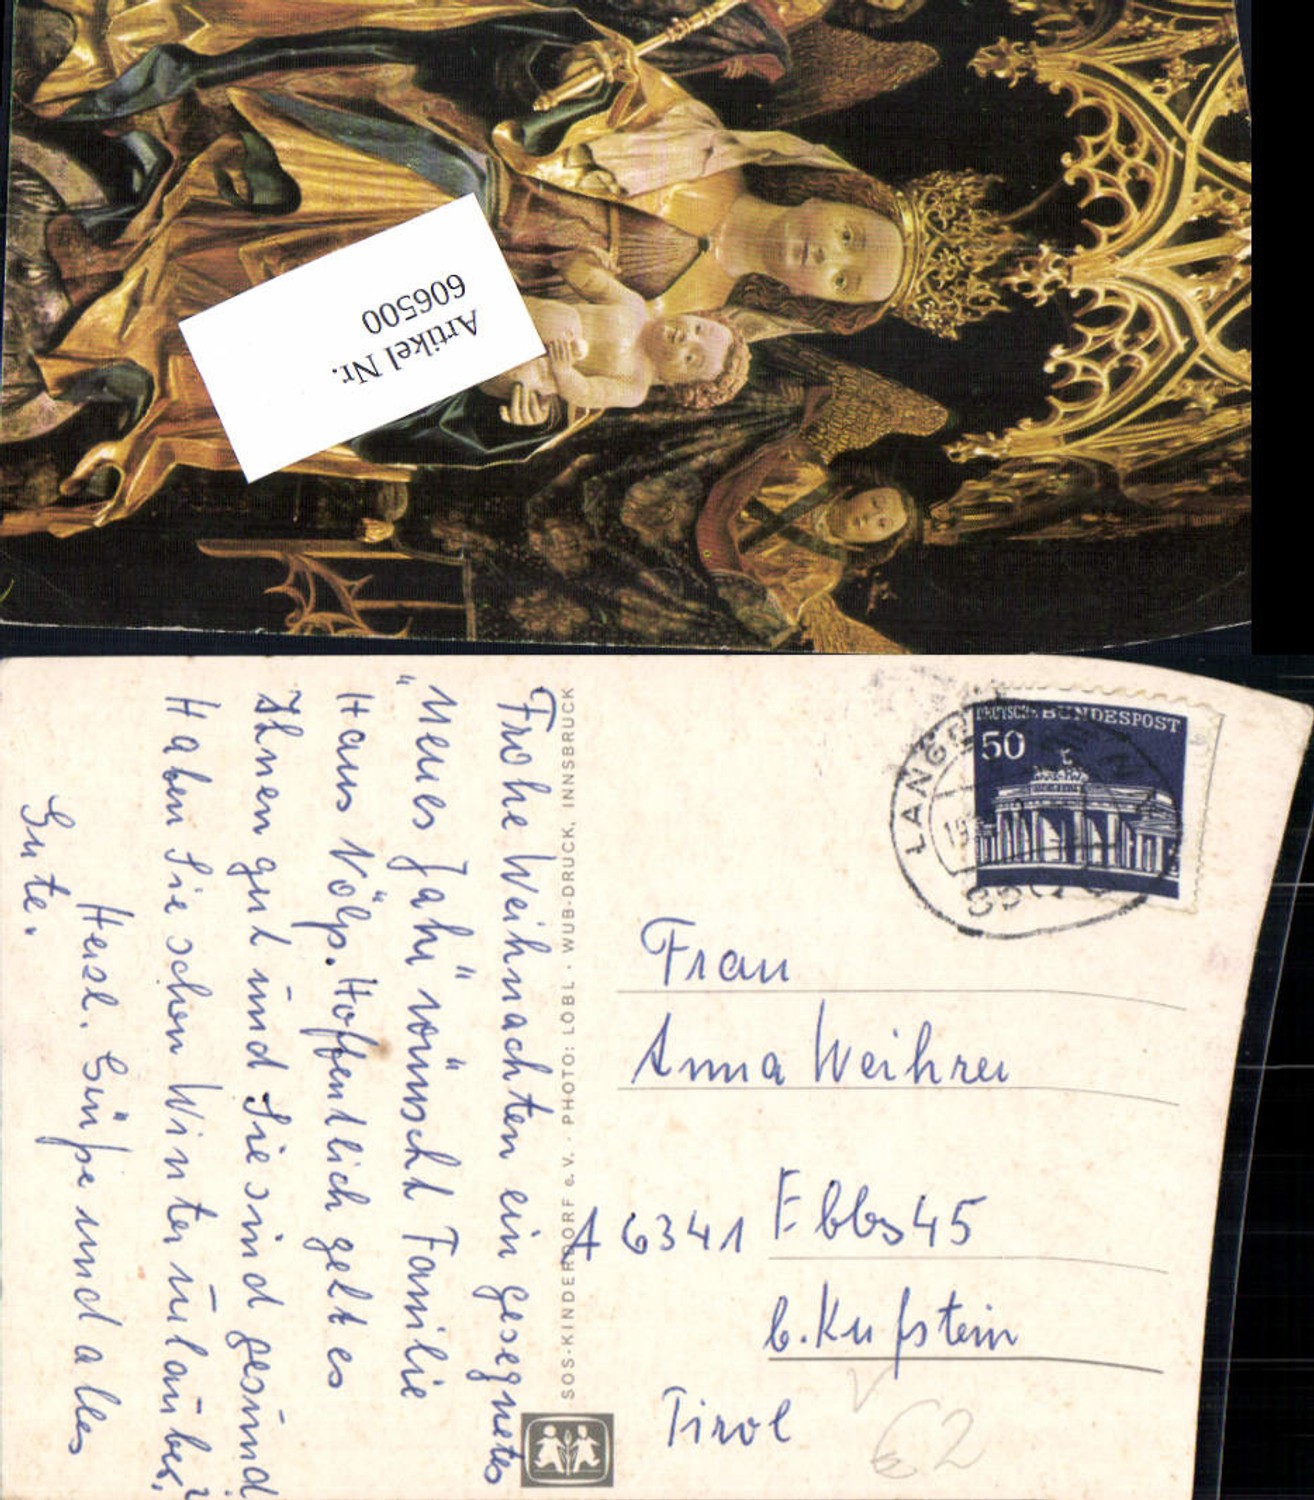 Artikel Nr.
606500
DEUTSCHE BUNDESPOST
50
Frohe Weihnachten ein gesegnetes
"Neues Jahr" wünscht Familie
Hans Völp. Hoffentlich geht es
Ihnen gut und Sie sind gesund
Haben Sie schon Winterurlauber?
Herzl. Grüße und alles
Gute.
SOS-KINDERDORF e.V. · PHOTO: LÖBL · WUB-DRUCK, INNSBRUCK
Frau
Anna Weihrer
A 6341 Ebbs 45
b. Kufstein
Tirol
€2